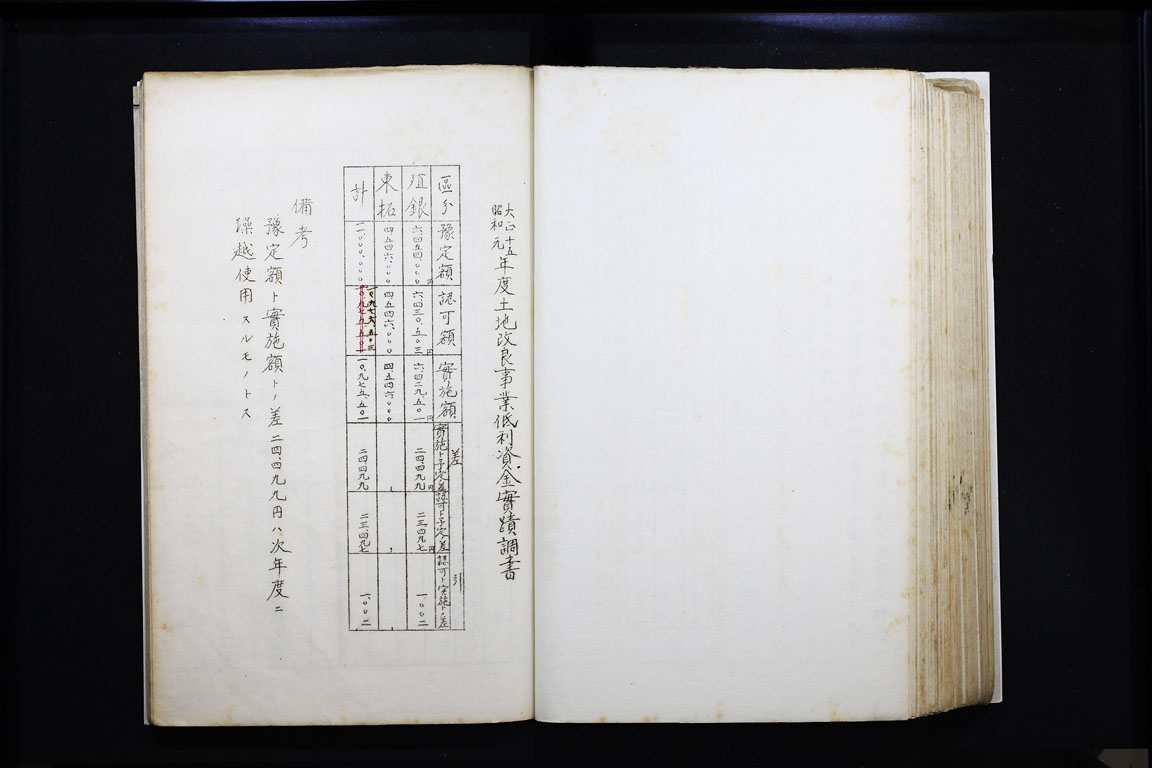 大正十五
昭和元年度土地改良事業低利資金實蹟調書
區分 豫定額 認可額 實施額 差引 實施ト予定ノ差 認可ト予定ノ差 認可ト実施トノ差
殖銀 六四五四、〇〇〇円 六四三〇、五〇三円 六、四二九、五〇一円 二四、四九九円 二三、四九七円 一、〇〇二
東拓 四五四六、〇〇〇 四五四六、〇〇〇 四五四六、〇〇〇
計 一一、〇〇〇、〇〇〇 一〇、九七六、五〇三 一〇、九七五、五〇一 二四四九九 二三、四九七 一、〇〇二
備考
豫定額ト實施額トノ差二四、四九九円ハ次年度ニ
繰越使用スルモノトス